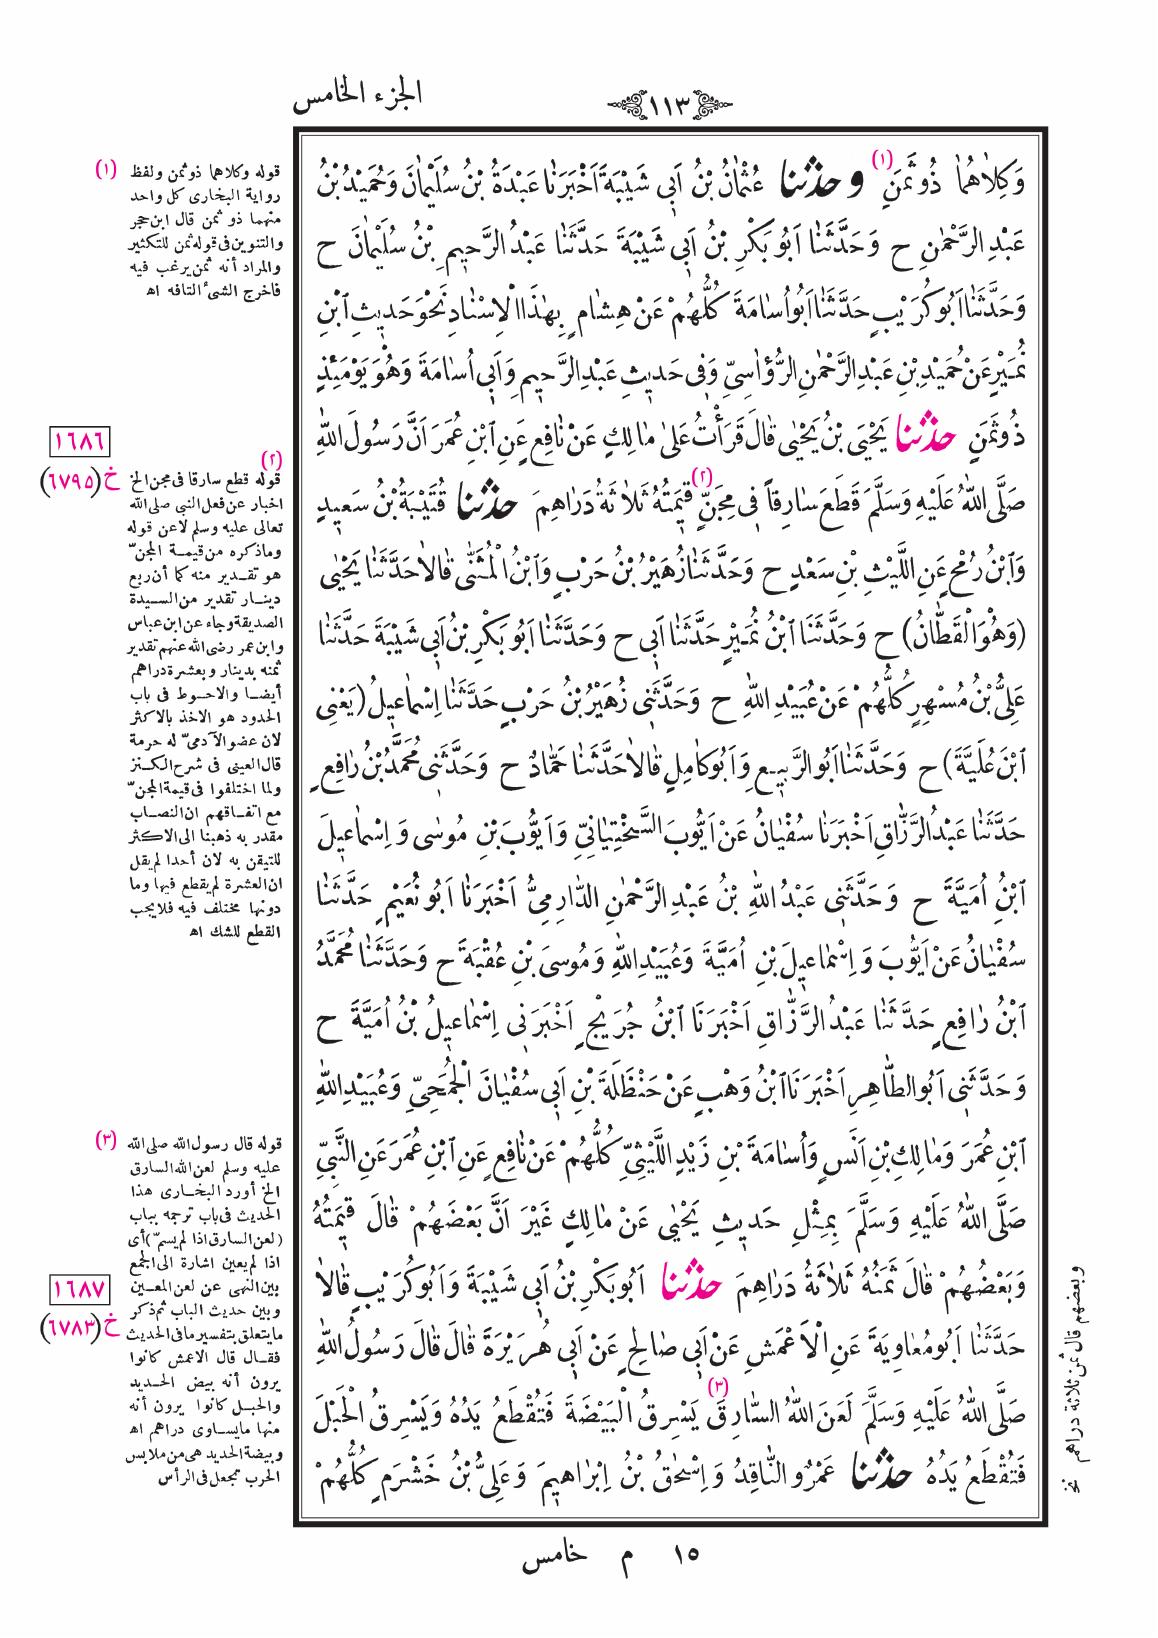 ١١٣
الجزء الخامس
وَكِلَاهُمَا ذُو ثَمَنٍ (١) و حدثنا عُثْمَانُ بْنُ اَبِي شَيْبَةَ اَخْبَرَنَا عَبْدَةُ بْنُ سُلَيْمَانَ وَحُمَيْدُ بْنُ
عَبْدِ الرَّحْمٰنِ ح وَحَدَّثَنَا اَبُو بَكْرِ بْنُ اَبِي شَيْبَةَ حَدَّثَنَا عَبْدُ الرَّحِيمِ بْنُ سُلَيْمَانَ ح
وَحَدَّثَنَا اَبُو كُرَيْبٍ حَدَّثَنَا اَبُو اُسَامَةَ كُلُّهُمْ عَنْ هِشَامٍ بِهٰذَا الْاِسْنَادِ نَحْوَ حَدِيثِ ابْنِ
نُمَيْرٍ عَنْ حُمَيْدِ بْنِ عَبْدِ الرَّحْمٰنِ الرُّؤَاسِيِّ وَفِي حَدِيثِ عَبْدِ الرَّحِيمِ وَاَبِي اُسَامَةَ وَهُوَ يَوْمَئِذٍ
ذُو ثَمَنٍ حدثنا يَحْيَى بْنُ يَحْيٰى قَالَ قَرَأْتُ عَلٰى مَالِكٍ عَنْ نَافِعٍ عَنِ ابْنِ عُمَرَ اَنَّ رَسُولَ اللّٰهِ
صَلَّى اللّٰهُ عَلَيْهِ وَسَلَّمَ قَطَعَ سَارِقاً فِي مِجَنٍّ (٢) قِيمَتُهُ ثَلَاثَةُ دَرَاهِمَ حدثنا قُتَيْبَةُ بْنُ سَعِيدٍ
وَابْنُ رُمْحٍ عَنِ اللَّيْثِ بْنِ سَعْدٍ ح وَحَدَّثَنَا زُهَيْرُ بْنُ حَرْبٍ وَابْنُ الْمُثَنّٰى قَالَا حَدَّثَنَا يَحْيٰى
(وَهُوَ الْقَطَّانُ) ح وَحَدَّثَنَا ابْنُ نُمَيْرٍ حَدَّثَنَا اَبِي ح وَحَدَّثَنَا اَبُو بَكْرِ بْنُ اَبِي شَيْبَةَ حَدَّثَنَا
عَلِيُّ بْنُ مُسْهِرٍ كُلُّهُمْ عَنْ عُبَيْدِ اللّٰهِ ح وَحَدَّثَنِي زُهَيْرُ بْنُ حَرْبٍ حَدَّثَنَا اِسْمَاعِيلُ (يَعْنِي
ابْنَ عُلَيَّةَ) ح وَحَدَّثَنَا اَبُو الرَّبِيعِ وَاَبُو كَامِلٍ قَالَا حَدَّثَنَا حَمَّادٌ ح وَحَدَّثَنِي مُحَمَّدُ بْنُ رَافِعٍ
حَدَّثَنَا عَبْدُ الرَّزَّاقِ اَخْبَرَنَا سُفْيَانُ عَنْ اَيُّوبَ السَّخْتِيَانِيِّ وَاَيُّوبَ بْنِ مُوسٰى وَاِسْمَاعِيلَ
ابْنِ اُمَيَّةَ ح وَحَدَّثَنِي عَبْدُ اللّٰهِ بْنُ عَبْدِ الرَّحْمٰنِ الدَّارِمِيُّ اَخْبَرَنَا اَبُو نُعَيْمٍ حَدَّثَنَا
سُفْيَانُ عَنْ اَيُّوبَ وَاِسْمَاعِيلَ بْنِ اُمَيَّةَ وَعُبَيْدِ اللّٰهِ وَمُوسَى بْنِ عُقْبَةَ ح وَحَدَّثَنَا مُحَمَّدُ
ابْنُ رَافِعٍ حَدَّثَنَا عَبْدُ الرَّزَّاقِ اَخْبَرَنَا ابْنُ جُرَيْجٍ اَخْبَرَنِي اِسْمَاعِيلُ بْنُ اُمَيَّةَ ح
وَحَدَّثَنِي اَبُو الطَّاهِرِ اَخْبَرَنَا ابْنُ وَهْبٍ عَنْ حَنْظَلَةَ بْنِ اَبِي سُفْيَانَ الْجُمَحِيِّ وَعُبَيْدِ اللّٰهِ
ابْنِ عُمَرَ وَمَالِكِ بْنِ اَنَسٍ وَاُسَامَةَ بْنِ زَيْدٍ اللَّيْثِيِّ كُلُّهُمْ عَنْ نَافِعٍ عَنِ ابْنِ عُمَرَ عَنِ النَّبِيِّ
صَلَّى اللّٰهُ عَلَيْهِ وَسَلَّمَ بِمِثْلِ حَدِيثِ يَحْيٰى عَنْ مَالِكٍ غَيْرَ اَنَّ بَعْضَهُمْ قَالَ قِيمَتُهُ
وَبَعْضُهُمْ قَالَ ثَمَنُهُ ثَلَاثَةُ دَرَاهِمَ حدثنا اَبُو بَكْرِ بْنُ اَبِي شَيْبَةَ وَاَبُو كُرَيْبٍ قَالَا
حَدَّثَنَا اَبُو مُعَاوِيَةَ عَنِ الْاَعْمَشِ عَنْ اَبِي صَالِحٍ عَنْ اَبِي هُرَيْرَةَ قَالَ قَالَ رَسُولُ اللّٰهِ
صَلَّى اللّٰهُ عَلَيْهِ وَسَلَّمَ لَعَنَ اللّٰهُ السَّارِقَ (٣) يَسْرِقُ الْبَيْضَةَ فَتُقْطَعُ يَدُهُ وَيَسْرِقُ الْحَبْلَ
فَتُقْطَعُ يَدُهُ حدثنا عَمْرٌو النَّاقِدُ وَاِسْحٰقُ بْنُ اِبْرَاهِيمَ وَعَلِيُّ بْنُ خَشْرَمٍ كُلُّهُمْ
وبعضهم قال ثمن ثلاثة دراهم نخ
(١) قوله وكلاهما ذو ثمن ولفظ
رواية البخارى كل واحد
منهما ذو ثمن قال ابن حجر
والتنوين فى قوله ثمن للتكثير
والمراد أنه ثمن يرغب فيه
فاخرج الشىء التافه اه
١٦٨٦
خ (٦٧٩٥)
(٢)
قوله قطع سارقا فى مجن الخ
اخبار عن فعل النبى صلى الله
تعالى عليه وسلم لا عن قوله
وما ذكره من قيمة المجنّ
هو تقدير منه كما أن ربع
دينار تقدير من السيدة
الصديقة وجاء عن ابن عباس
وابن عمر رضى الله عنهم تقدير
ثمنه بدينار وبعشرة دراهم
أيضا والاحوط فى باب
الحدود هو الاخذ بالاكثر
لان عضو الآدمىّ له حرمة
قال العينى فى شرح الكنز
ولما اختلفوا فى قيمة المجنّ
مع اتفاقهم ان النصاب
مقدر به ذهبنا الى الاكثر
للتيقن به لان أحدا لم يقل
ان العشرة لم يقطع فيها وما
دونها مختلف فيه فلا يجب
القطع للشك اه
(٣) قوله قال رسول الله صلى الله
عليه وسلم لعن الله السارق
الخ أورد البخارى هذا
الحديث فى باب ترجمه بباب
(لعن السارق اذا لم يسمّ) أى
اذا لم يعين اشارة الى الجمع
بين النهى عن لعن المعين
وبين حديث الباب ثم ذكر
ما يتعلق بتفسير ما فى الحديث
فقال قال الاعمش كانوا
يرون أنه بيض الحديد
والحبل كانوا يرون أنه
منها ما يساوى دراهم اه
وبيضة الحديد هى من ملابس
الحرب تجعل فى الرأس
١٦٨٧
خ (٦٧٨٣)
١٥ م خامس